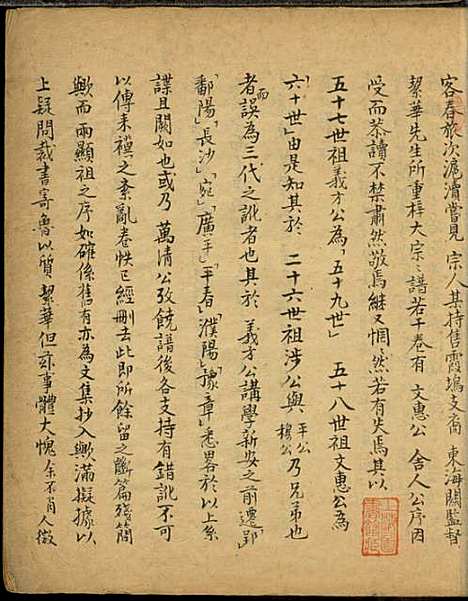 客春旅次滬瀆嘗見 宗人某持售霞塢支裔 東海關監督
絜華先生所重梓大宗之譜若干卷有 文惠公 舍人公序因
受而恭讀不禁肅然敬焉繼又惘然若有失焉其以
五十七世祖義才公為「五十九世」 五十八世祖文惠公為
「六十世」由是知其於 二十六世祖涉公與 平公 穆公 乃兄弟也
而者誤為三代之訛者也其於 義才公講學新安之前遷「郢」
「鄱陽」「長沙」「宛」「廣平」「平春」「濮陽」「豫章」悉畧於以上系
諜且闕如也或乃 萬清公攷饒譜後各支持有錯訛不可
以傳来禩之紊亂卷帙已經刪去此即所餘留之斷篇殘簡
歟而兩顯祖之序如確係舊有亦為文集抄入歟滿擬據以
上疑問裁書寄魯以質 絜華但茲事體大愧余不肖人微